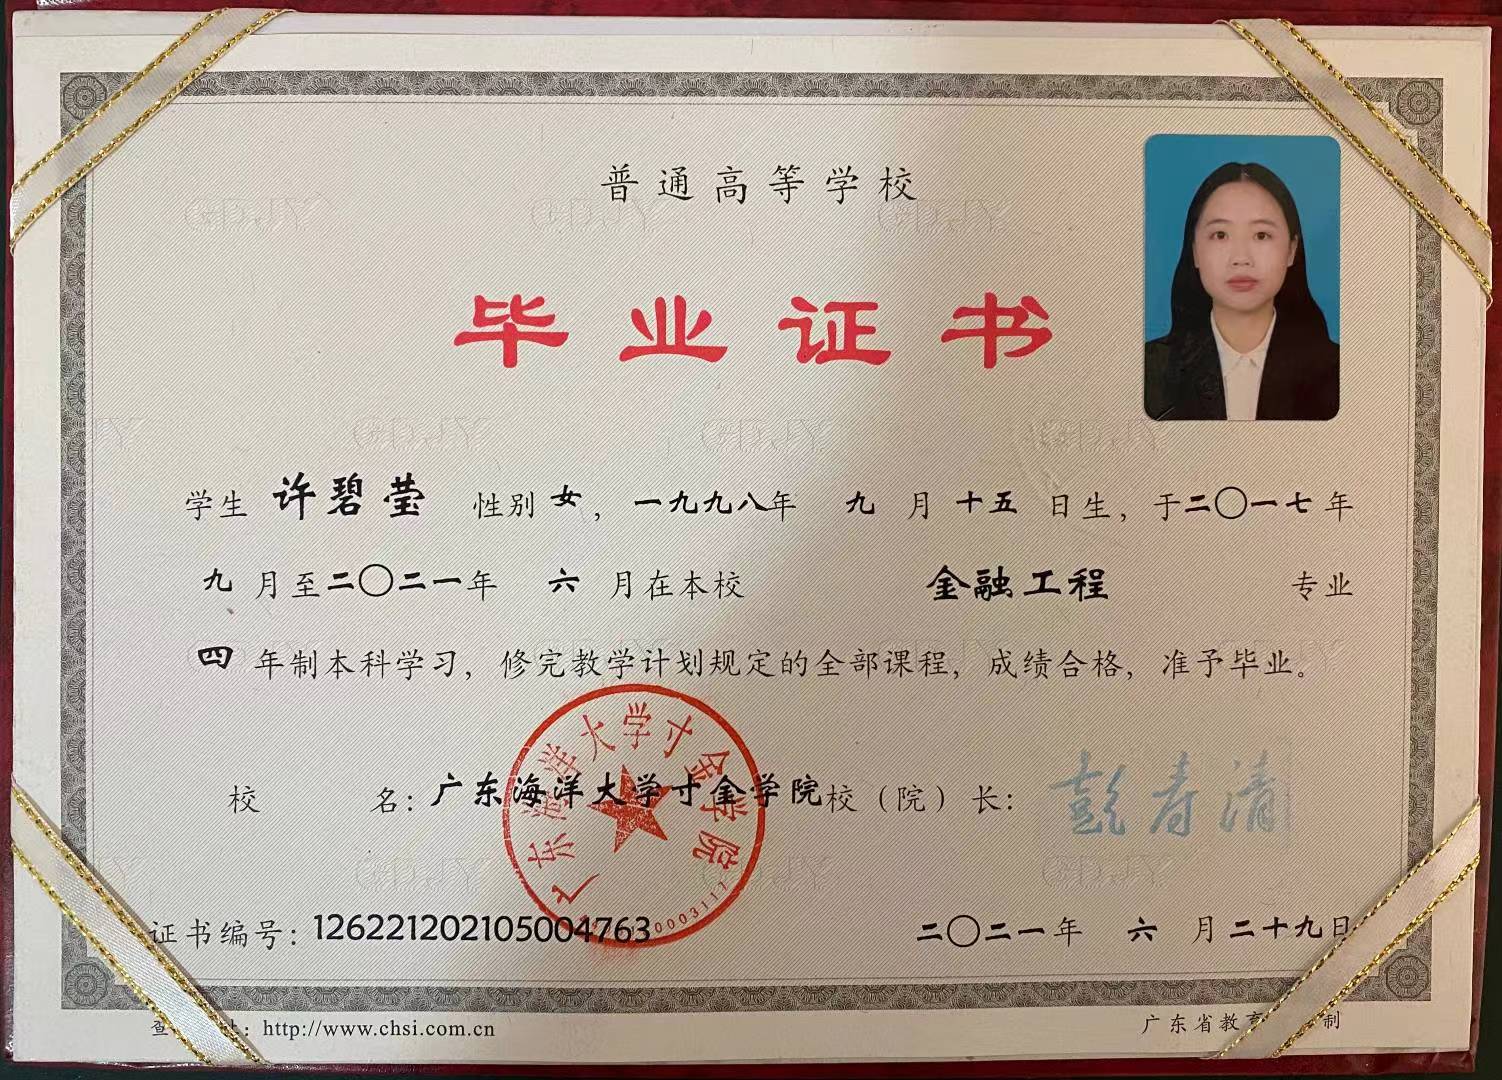 普通高等学校
毕业证书
学生 许碧莹 性别 女，一九九八年 九 月 十五 日生，于二〇一七 年
九 月至二〇二一年 六 月在本校 金融工程 专业
四 年制本科学习，修完教学计划规定的全部课程，成绩合格，准予毕业。
校 名：广东海洋大学寸金学院 校（院）长：彭寿清
广东海洋大学寸金学院
证书编号：126221202105004763 二〇二一年 六 月二十九日
查 址：http://www.chsi.com.cn 广东省教育 制
GDJY